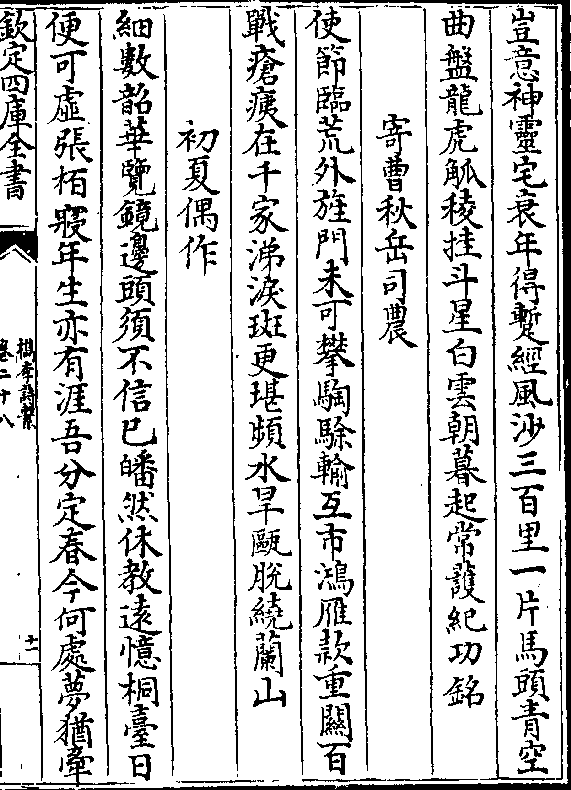 豈意神靈宅衰年得蹔經風沙三百里一片馬頭青空
曲盤龍虎觚稜挂斗星白雲朝暮起常護紀功銘
寄曹秋岳司農
使節臨荒外旌門未可攀騊駼輸互市鴻雁款重關百
戰瘡痍在千家涕淚斑更堪頻水旱甌脫繞蘭山
初夏偶作
細數韶華覽鏡邊頭須不信已皤然休教遠憶桐臺日
便可虛張栢寢年生亦有涯吾分定春今何處夢猶牽
欽定四庫全書
卷二十八
十二